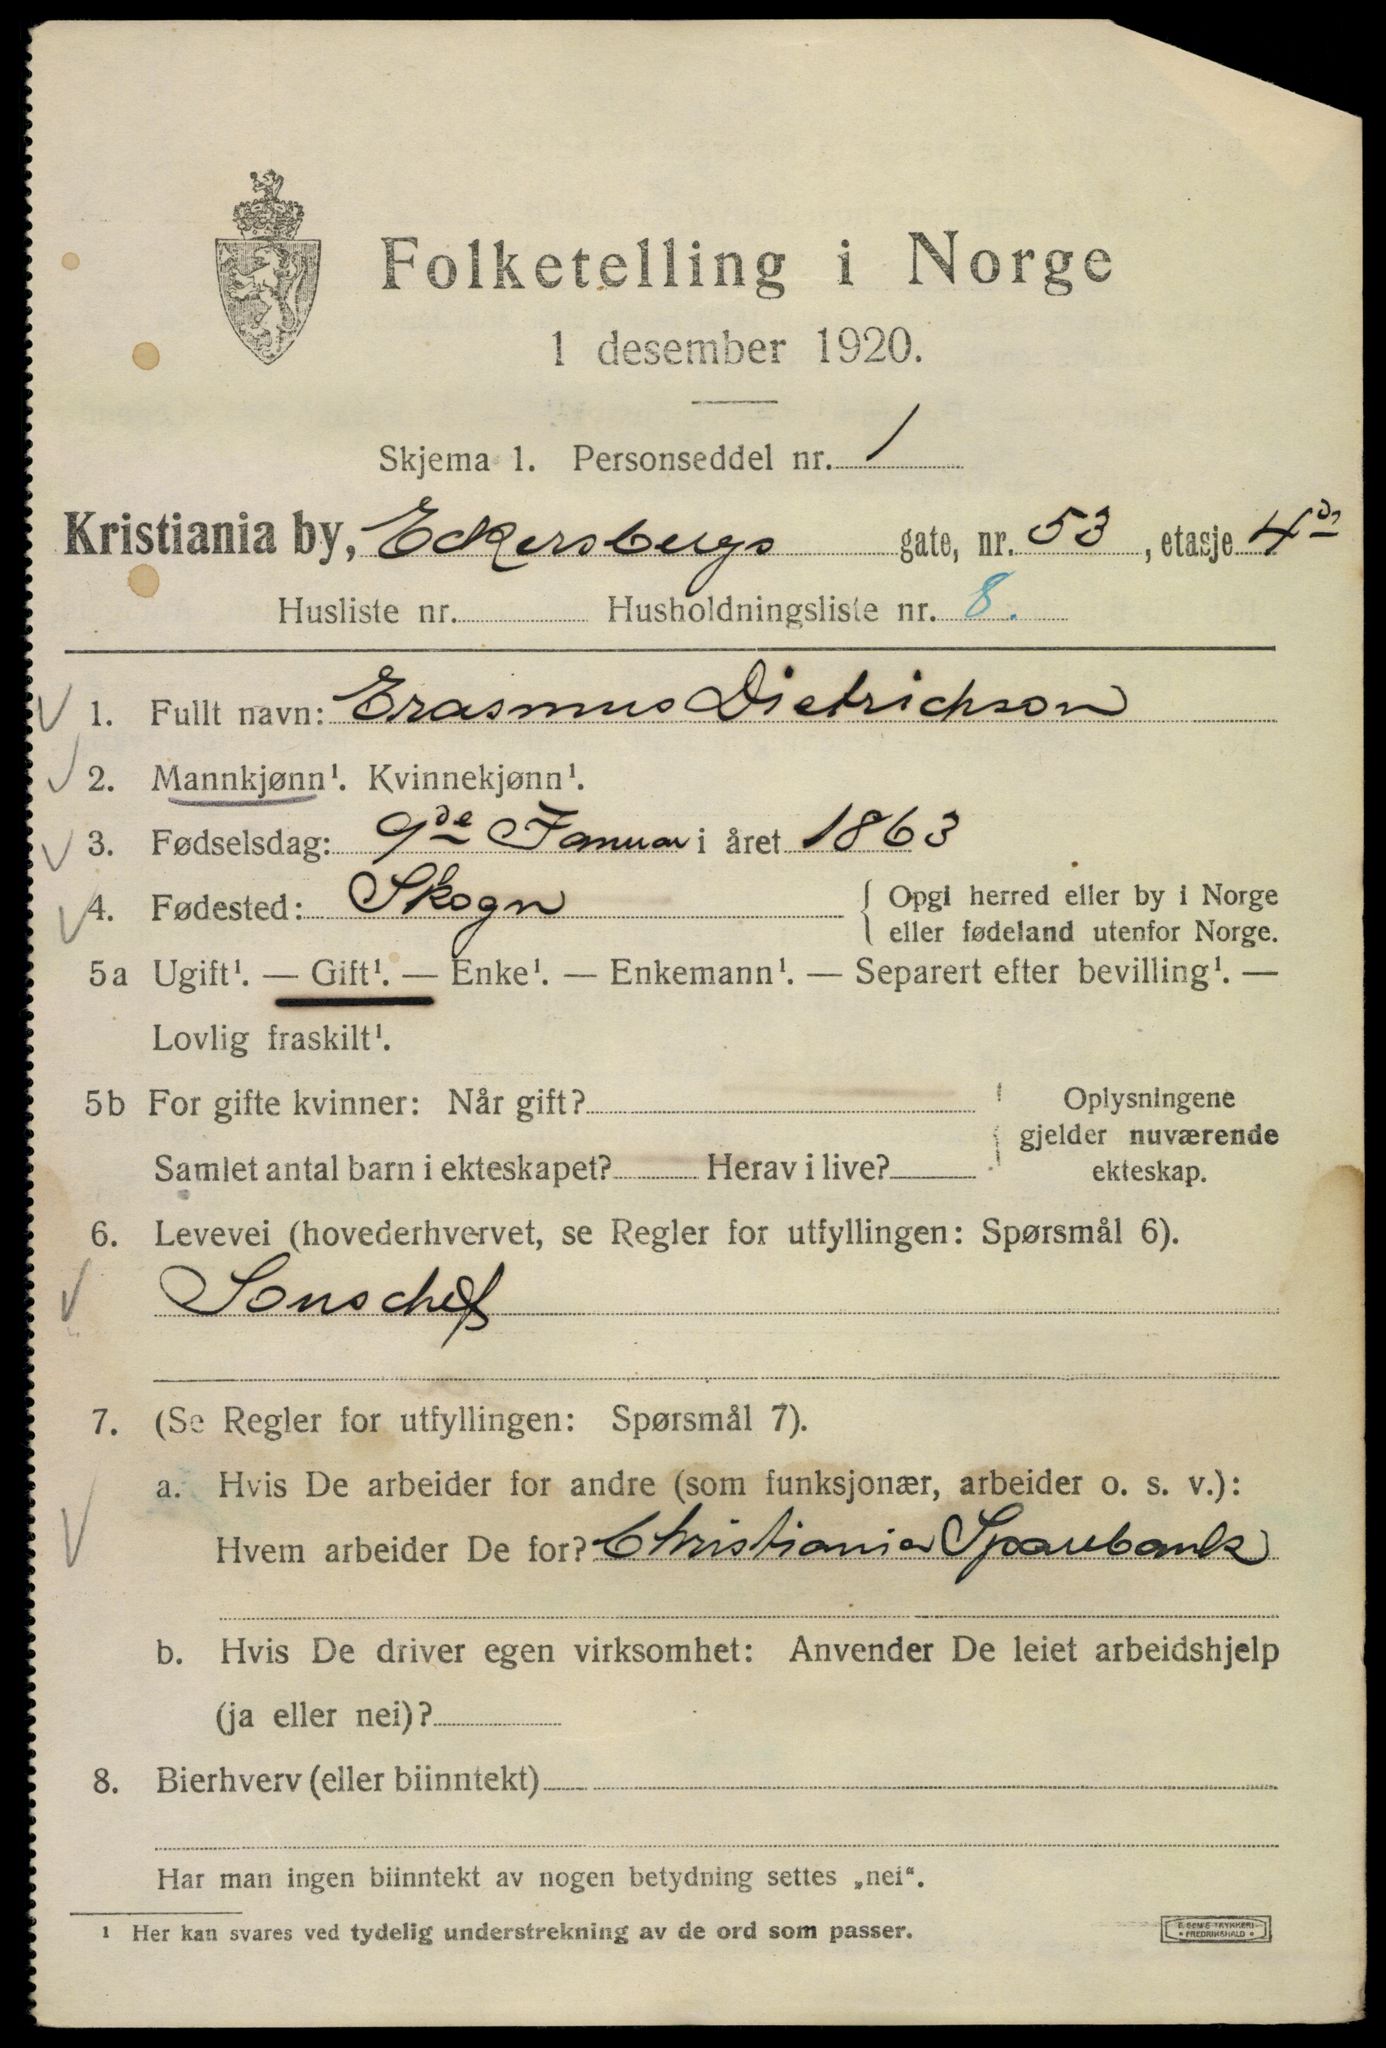 Folketelling i Norge
1 desember 1920.
Skjema 1. Personseddel nr. 1
Kristiania by, Eckersbergs gate, nr. 53, etasje 4de
Husliste nr. Husholdningsliste nr. 8.
1. Fullt navn: Erasmus Dietrichson
2. Mannkjønn¹. Kvinnekjønn¹.
3. Fødselsdag: 9de Januar i året 1863
4. Fødested: Skogn { Opgi herred eller by i Norge
eller fødeland utenfor Norge.
5a Ugift¹. — Gift¹. — Enke¹. — Enkemann¹. — Separert efter bevilling¹. —
Lovlig fraskilt¹.
5b For gifte kvinner: Når gift? Oplysningene
gjelder nuværende
Samlet antal barn i ekteskapet? Herav i live? ekteskap.
6. Levevei (hovederhvervet, se Regler for utfyllingen: Spørsmål 6).
Sonschef
7. (Se Regler for utfyllingen: Spørsmål 7).
a. Hvis De arbeider for andre (som funksjonær, arbeider o. s. v.):
Hvem arbeider De for? Christiania Sparebank
b. Hvis De driver egen virksomhet: Anvender De leiet arbeidshjelp
(ja eller nei)?
8. Bierhverv (eller biinntekt) —
Har man ingen biinntekt av nogen betydning settes „nei“.
¹ Her kan svares ved tydelig understrekning av de ord som passer.
FREDRIKSHALD